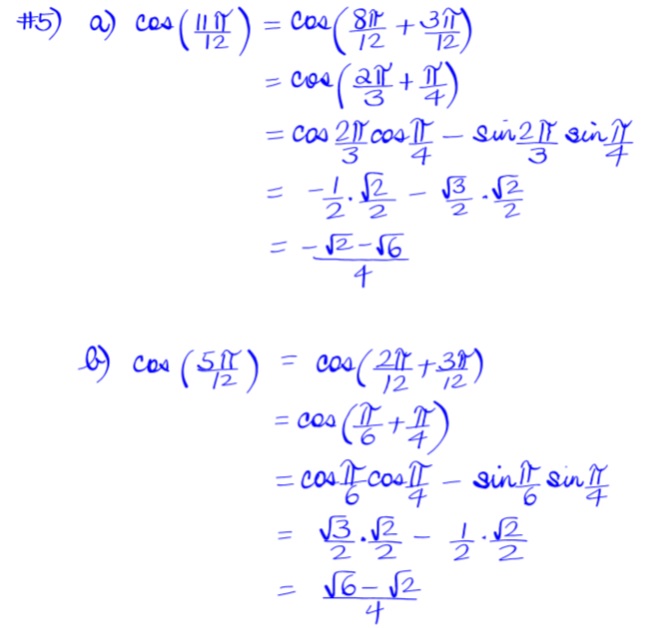 #5) a) cos(11π/12) = cos(8π/12 + 3π/12)
= cos(2π/3 + π/4)
= cos 2π/3 cos π/4 − sin 2π/3 sin π/4
= −1/2 · √2/2 − √3/2 · √2/2
= (−√2 − √6)/4
b) cos(5π/12) = cos(2π/12 + 3π/12)
= cos(π/6 + π/4)
= cos π/6 cos π/4 − sin π/6 sin π/4
= √3/2 · √2/2 − 1/2 · √2/2
= (√6 − √2)/4